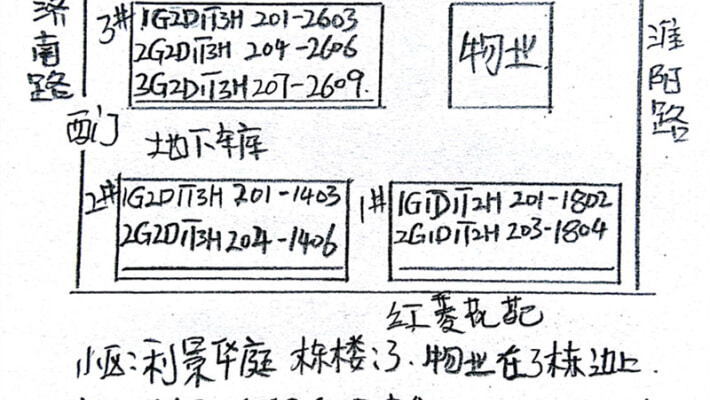 济南路
3#
1G2D1T3H 201-2603
2G2D1T3H 204-2606
3G2D1T3H 207-2609.
物业
淮阿路
西门
地下车库
2#
1G2D1T3H 201-1403
2G2D1T3H 204-1406
1#
1G1D1T2H 201-1802
2G1D1T2H 203-1804
小区:利景华庭 栋楼:3. 物业在3栋边上.